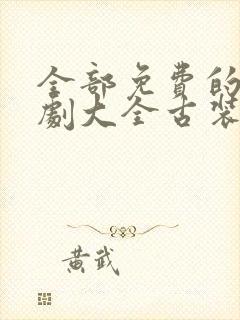 全部免費的
劇大全古裝
黃武